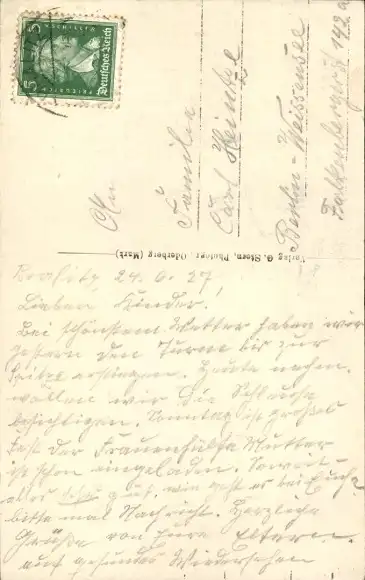 Deutsches Reich
5
5
FRIEDRICH
An
Familie
Carl Heintze
Berlin-Weissensee
Falkenbergerstr 142a
Verlag G. Stoern, Photogr. Oderberg (Mark)
24. 6. 27
Lieben Kinder!
Bei schönstem Wetter haben wir
gestern den Turm bis zur
Spitze erstiegen. Heute nachm.
wollen wir die Schleuse
besichtigen. Sonntag ist großes
Fest der Frauenhülfe Mutter
ist schon eingeladen. Soweit
alles gut, wie geht es bei Euch?
bitte mal Nachricht. Herzliche
Grüße von Eure Eltern.
auf gesundes Wiedersehen